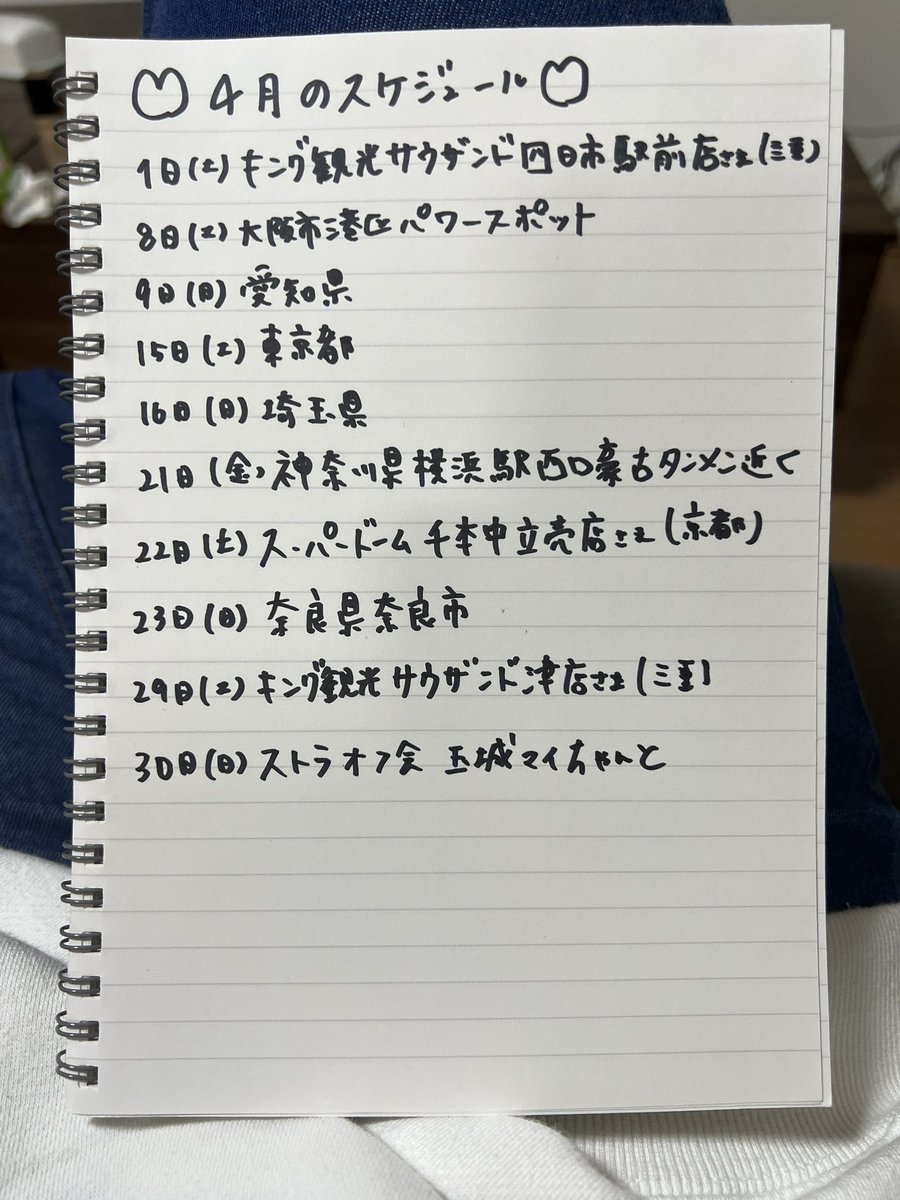 4月のスケジュール
1日(土) キング観光サウザンド四日市駅前店さま(三重)
8日(土) 大阪市港区パワースポット
9日(日) 愛知県
15日(土) 東京都
16日(日) 埼玉県
21日(金) 神奈川県横浜駅西口豪古タンメン近く
22日(土) スーパードーム千本中立売店さま(京都)
23日(日) 奈良県奈良市
29日(土) キング観光サウザンド津店さま(三重)
30日(日) ストラオフ会 玉城マイちゃんと